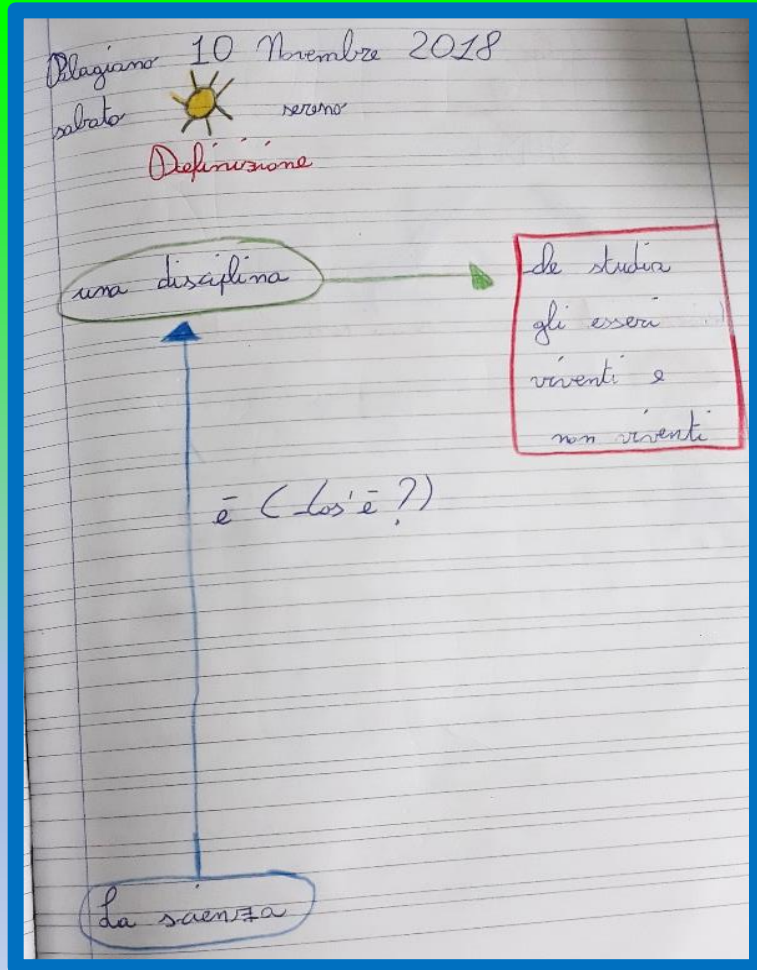 Palagiano 10 Novembre 2018
sabato sereno
Definizione
una disciplina
che studia
gli esseri
viventi e
non viventi
è (cos'è?)
La scienza